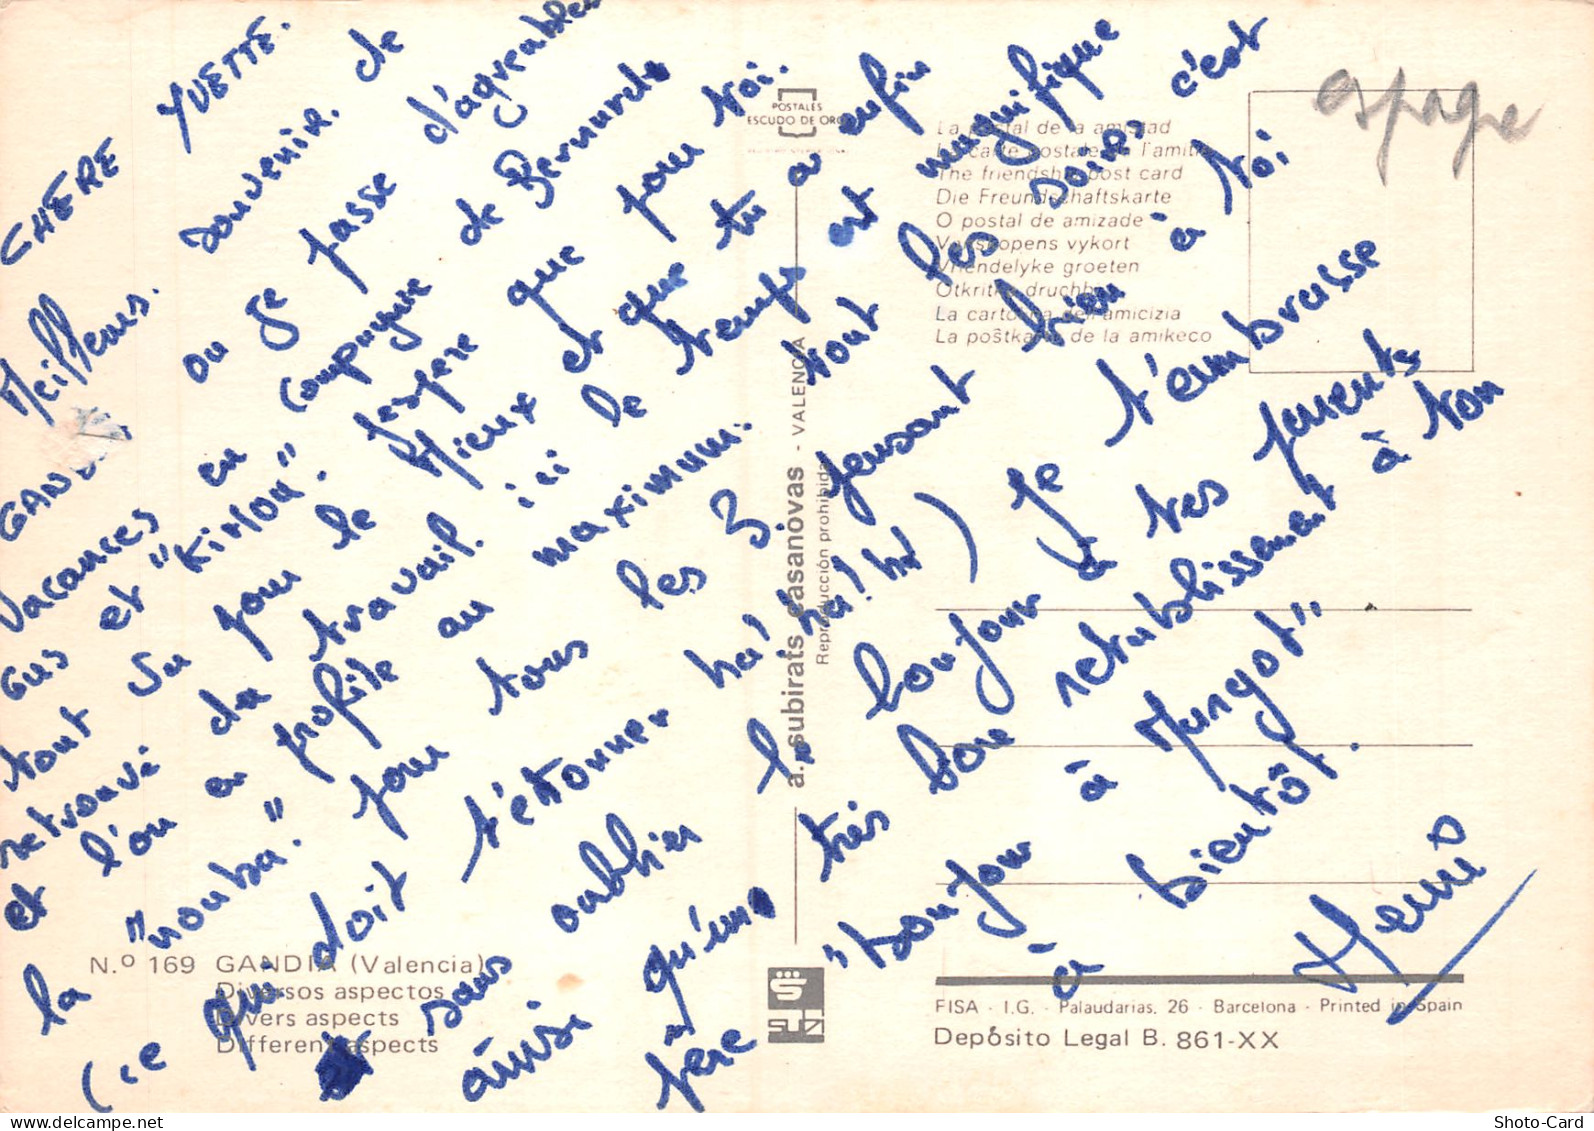 CHÈRE YVETTE.
Meilleurs souvenir. de
GANDIA ou je passe d'agreables
vacances en compagnie de Bernard
Gus et "KIKIOU". J'espère que pour toi.
tout su pour le Mieux et que tu a enfin
retrouvé du travail. ici le temps est magnifique
et l'on en profite au maximum. tout les soirs c'est
la "nouba." pour tous les 3. pensant bien à toi
(ce qui doit t'étonner ha! ha! ha!) Je t'embrasse
sans oublier le bonjour à tes parents
ainsi qu'un très bon retablissement à ton
père "bonjour à Margot"
à bientôt.
Henri
espagne
POSTALES
ESCUDO DE ORO
La postal de la amistad
La carte postale de l'amitié
The friendship post card
Die Freundschaftskarte
O postal de amizade
Vänskapens vykort
Vriendelyke groeten
Otkritka druchby
La cartolina dell'amicizia
La poŝtkarto de la amikeco
a. subirats casanovas - VALENCIA
Reproducción prohibida
N.º 169 GANDIA (Valencia)
Diversos aspectos
Divers aspects
Different aspects
FISA - I.G. - Palaudarias, 26 - Barcelona - Printed in Spain
Depósito Legal B. 861-XX
Shoto-Card